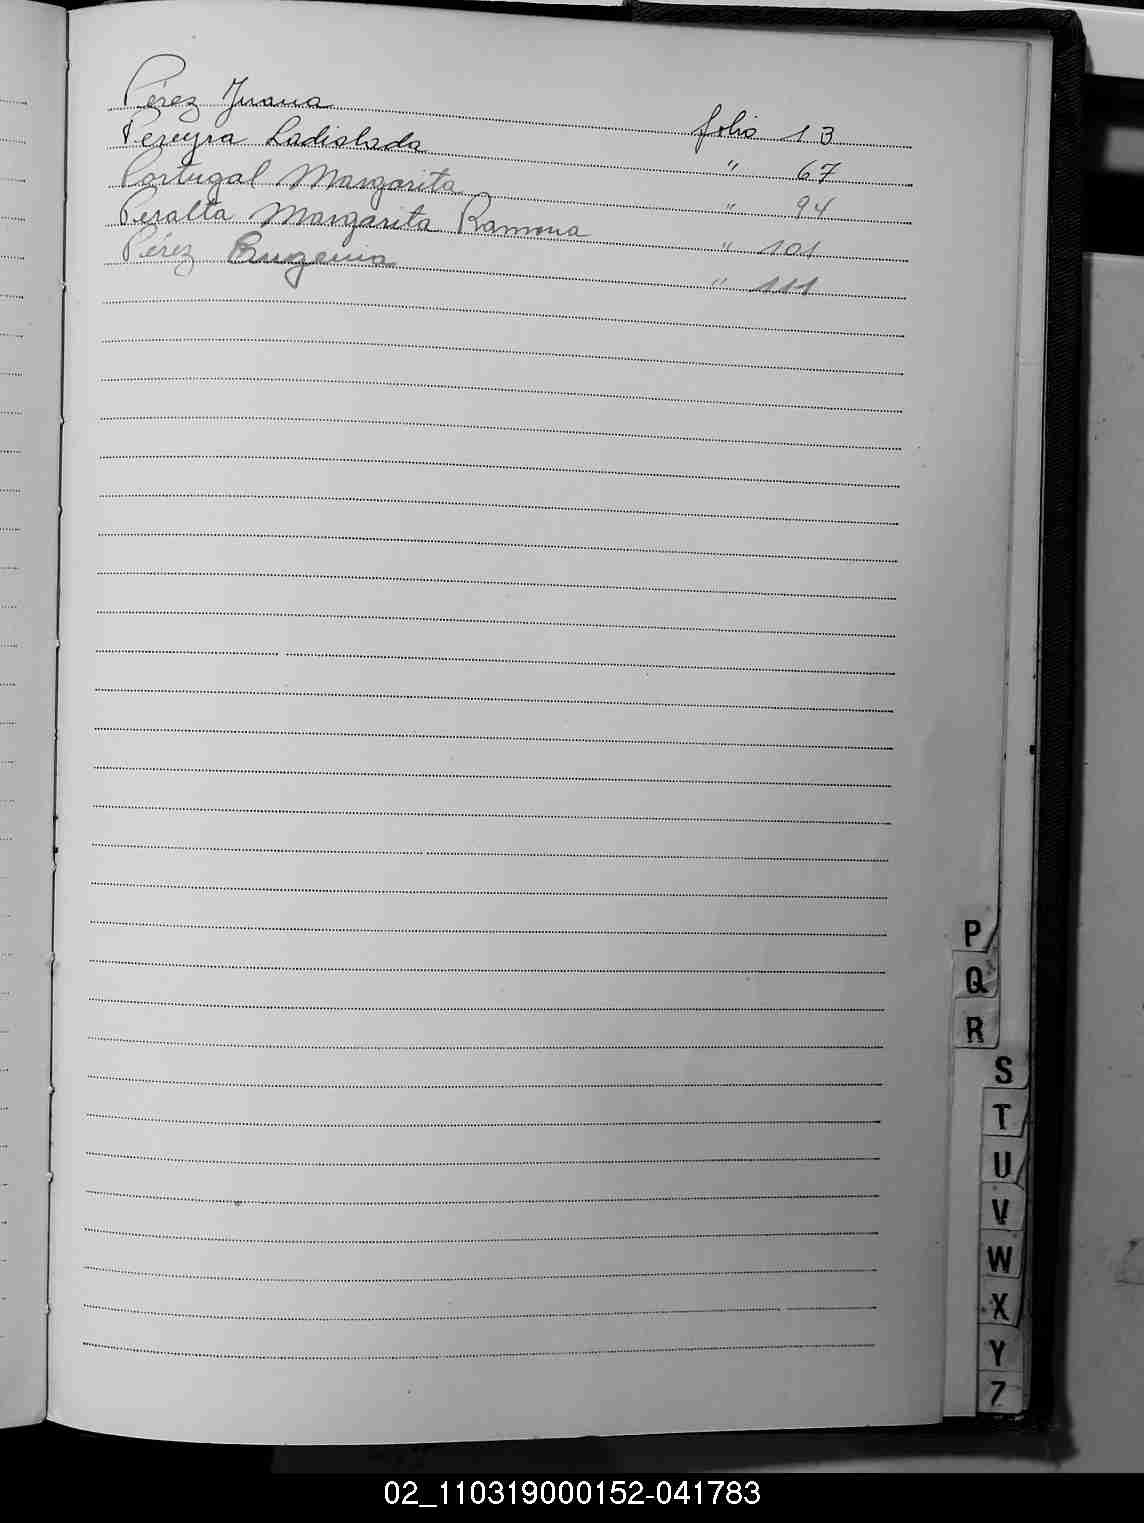 Pérez Juana folio 13
Pereyra Ladislada " 67
Portugal Margarita " 94
Peralta Margarita Ramona " 101
Pérez Eugenia " 111
P
Q
R
S
T
U
V
W
X
Y
Z
02_110319000152-041783